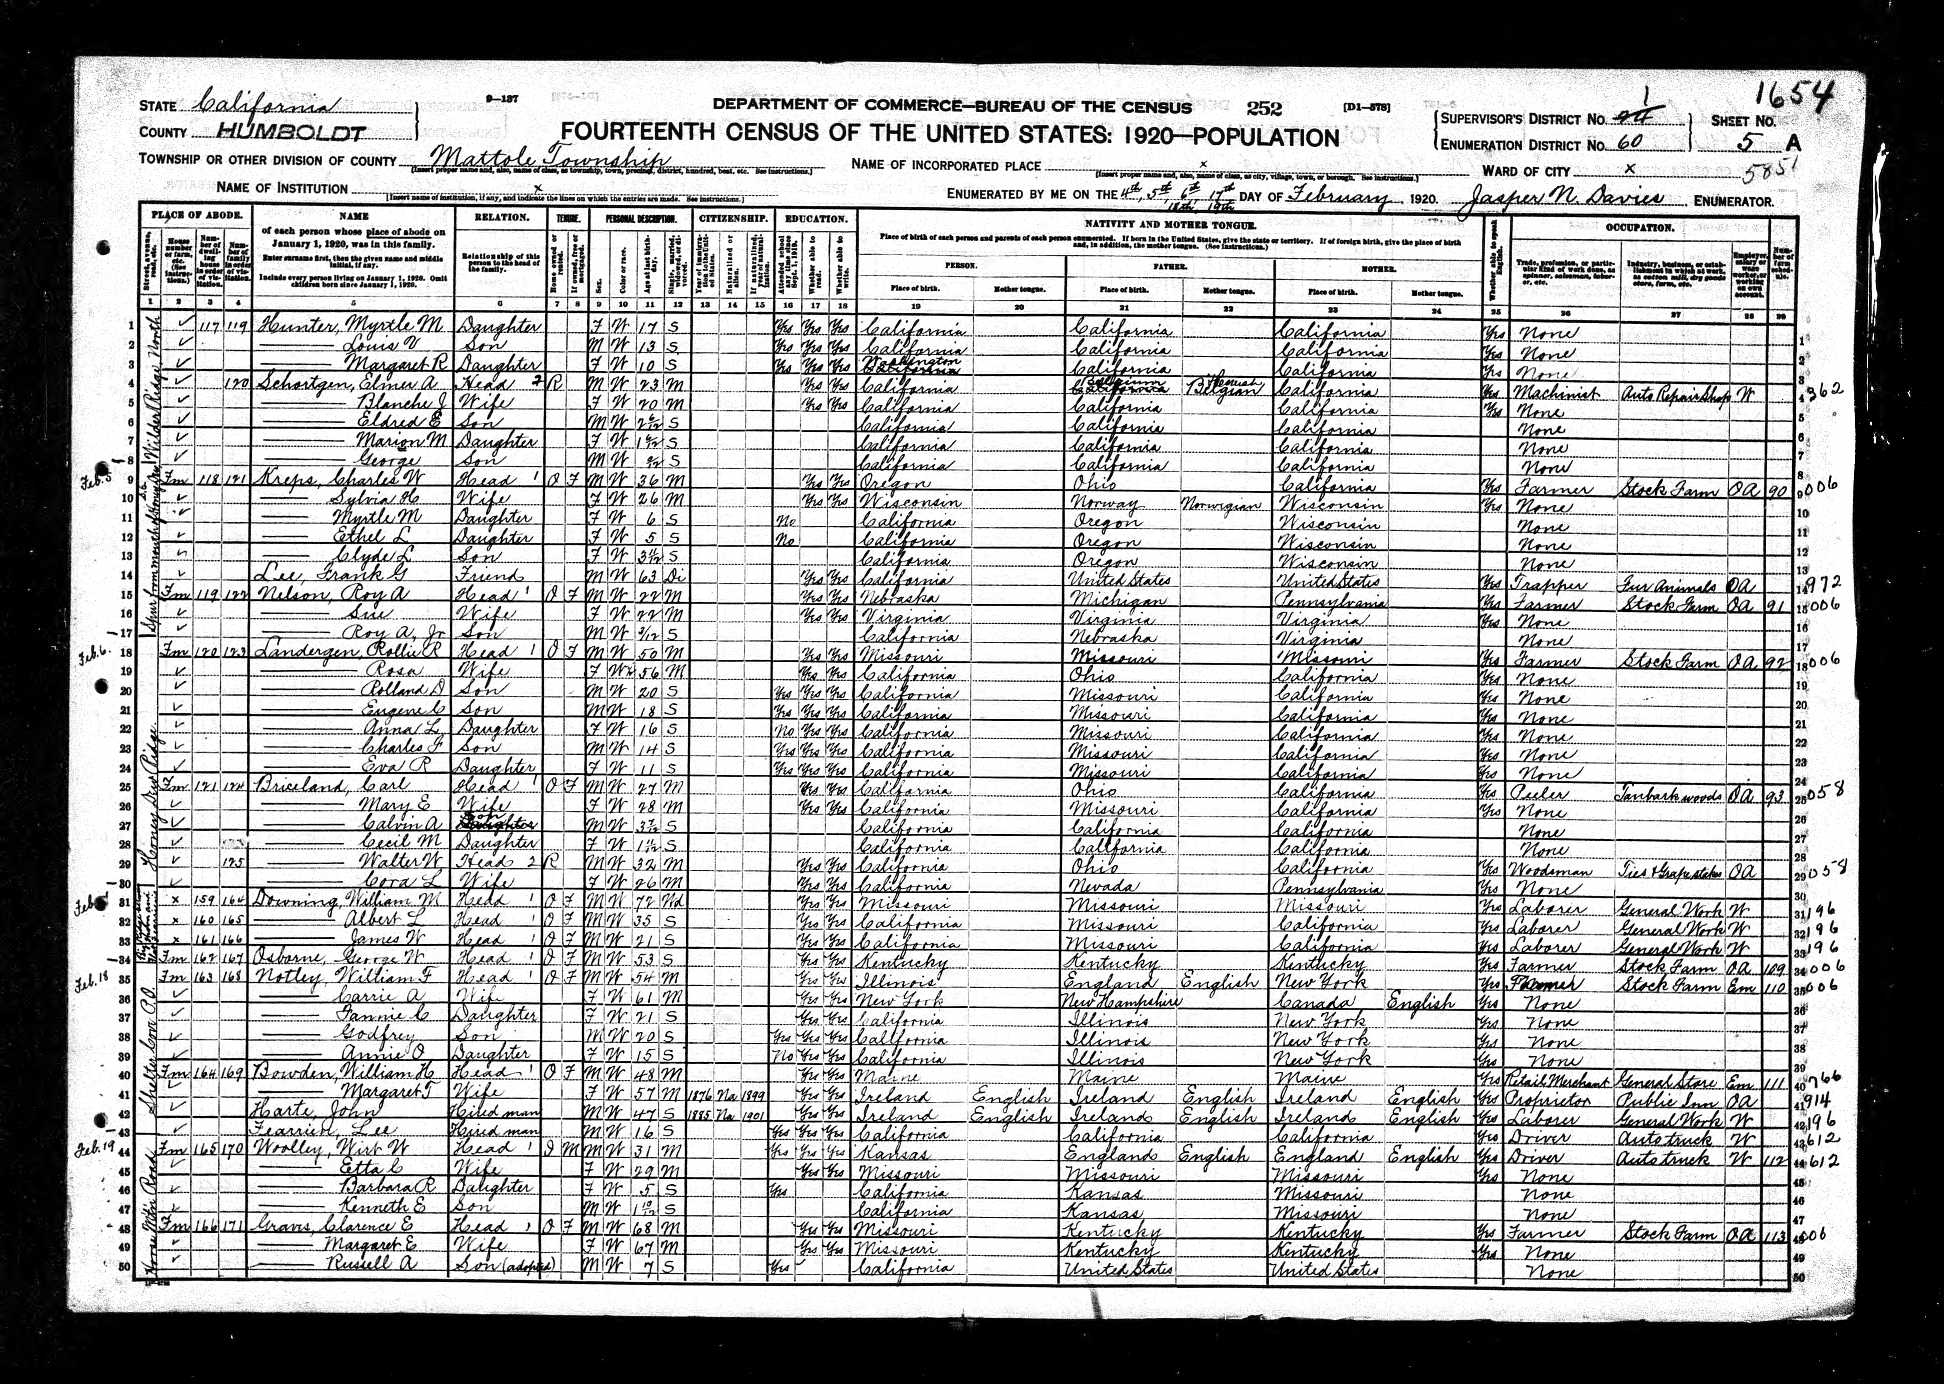 1654
STATE California
9-137
DEPARTMENT OF COMMERCE—BUREAU OF THE CENSUS 252 [D1-578]
COUNTY HUMBOLDT
FOURTEENTH CENSUS OF THE UNITED STATES: 1920—POPULATION
SUPERVISOR'S DISTRICT No. 1
SHEET No.
ENUMERATION DISTRICT No. 60
5 A
TOWNSHIP OR OTHER DIVISION OF COUNTY Mattole Township
NAME OF INCORPORATED PLACE x
WARD OF CITY x
5851
NAME OF INSTITUTION x
[Insert name of institution, if any, and indicate the lines on which the entries are made. See instructions.]
ENUMERATED BY ME ON THE 4th, 5th 6th 17th 18th, 19th DAY OF February, 1920. Jasper N. Davies ENUMERATOR.
PLACE OF ABODE. NAME RELATION. TENURE. PERSONAL DESCRIPTION. CITIZENSHIP. EDUCATION. NATIVITY AND MOTHER TONGUE. OCCUPATION.
of each person whose place of abode on January 1, 1920, was in this family.
Enter surname first, then the given name and middle initial, if any.
Include every person living on January 1, 1920. Omit children born since January 1, 1920.
Relationship of this person to the head of the family.
Place of birth of each person and parents of each person enumerated. If born in the United States, give the state or territory. If of foreign birth, give the place of birth and, in addition, the mother tongue. (See instructions.)
PERSON. FATHER. MOTHER.
Place of birth. Mother tongue. Place of birth. Mother tongue. Place of birth. Mother tongue.
1 2 3 4 5 6 7 8 9 10 11 12 13 14 15 16 17 18 19 20 21 22 23 24 25 26 27 28 29
1 117 119 Hunter, Myrtle M Daughter F W 17 S Yes Yes Yes California California California Yes None
2 Louis V Son M W 13 S Yes Yes Yes California California California Yes None
3 Margaret R Daughter F W 10 S Yes Yes Yes Washington California California Yes None
4 120 Schortgen, Elmer A Head 2 R M W 23 M Yes Yes California Belgium Flemish California Yes Machinist Auto Repair Shop W 362
5 Blanche J Wife F W 20 M Yes Yes California California California Yes None
6 Eldred E Son M W S California California California None
7 Marion M Daughter F W S California California California None
8 George Son M W S California California California None
Feb. 5 9 Fm 118 121 Kreps, Charles W Head 1 O F M W 36 M Yes Yes Oregon Ohio California Yes Farmer Stock Farm OA 90 006
10 Sylvia H Wife F W 26 M Yes Yes Wisconsin Norway Norwegian Wisconsin Yes None
11 Myrtle M Daughter F W 6 S No California Oregon Wisconsin None
12 Ethel L Daughter F W 5 S No California Oregon Wisconsin None
13 Clyde L Son F W S California Oregon Wisconsin None
14 Lee, Frank G Friend M W 63 Di Yes Yes California United States United States Yes Trapper Fur Animals OA 972
15 Fm 119 122 Nelson, Roy A Head 1 O F M W 22 M Yes Yes Nebraska Michigan Pennsylvania Yes Farmer Stock Farm OA 91 006
16 Sue Wife F W 22 M Yes Yes Virginia Virginia Virginia Yes None
17 Roy A, Jr Son M W S California Nebraska Virginia None
Feb. 6. 18 Fm 120 123 Landergen, Rollie R Head 1 O F M W 50 M Yes Yes Missouri Missouri Missouri Yes Farmer Stock Farm OA 92 006
19 Rosa Wife F W 56 M Yes Yes California Ohio California Yes None
20 Rolland D Son M W 20 S Yes Yes Yes California Missouri California Yes None
21 Eugene C Son M W 18 S Yes Yes Yes California Missouri California Yes None
22 Anna L Daughter F W 16 S No Yes Yes California Missouri California Yes None
23 Charles F Son M W 14 S Yes Yes Yes California Missouri California Yes None
24 Eva R Daughter F W 11 S Yes Yes Yes California Missouri California Yes None
25 Fm 121 124 Briceland, Carl Head 1 O F M W 27 M Yes Yes California Ohio California Yes Peeler Tanbark woods OA 93 058
26 Mary E Wife F W 28 M Yes Yes California Missouri California Yes None
27 Calvin A Son M W S California California California None
28 Cecil M Daughter F W S California California California None
29 125 Walter W Head 2 R M W 32 M Yes Yes California Ohio California Yes Woodsman Ties & Grape stakes OA 058
30 Cora L Wife F W 26 M Yes Yes California Nevada Pennsylvania Yes None
31 x 159 164 Downing, William M Head 1 O F M W 72 Wd Yes Yes Missouri Missouri Missouri Yes Laborer General Work W 196
32 x 160 165 Albert L Head 1 O F M W 35 S Yes Yes California Missouri California Yes Laborer General Work W 196
33 x 161 166 James W Head 1 O F M W 21 S Yes Yes California Missouri California Yes Laborer General Work W 196
34 Fm 162 167 Osborne, George W Head 1 O F M W 53 S Yes Yes Kentucky Kentucky Kentucky Yes Farmer Stock Farm OA 109 006
Feb. 18 35 Fm 163 168 Notley, William F Head 1 O F M W 54 M Yes Yes Illinois England English New York Yes Farmer Stock Farm Em 110 006
36 Carrie A Wife F W 61 M Yes Yes New York New Hampshire Canada English Yes None
37 Fannie C Daughter F W 21 S Yes Yes California Illinois New York Yes None
38 Godfrey Son M W 20 S Yes Yes Yes California Illinois New York Yes None
39 Annie O Daughter F W 15 S No Yes Yes California Illinois New York Yes None
40 Fm 164 169 Bowden, William H Head 1 O F M W 48 M Yes Yes Maine Maine Maine Yes Retail Merchant General Store Em 111 766
41 Margaret T Wife F W 57 M 1876 Na 1899 Yes Yes Ireland English Ireland English Ireland English Yes Proprietor Public Inn OA 914
42 Harte, John Hired man M W 47 S 1885 Na 1901 Yes Yes Ireland English Ireland English Ireland English Yes Laborer General Work W 196
43 Fearrien, Lee Hired man M W 16 S Yes Yes Yes California California California Yes Driver Auto truck W 612
Feb. 19 44 Fm 165 170 Woolley, Wirt W Head 1 O M M W 31 M Yes Yes Yes Kansas England English England English Yes Driver Auto truck W 112 612
45 Etta C Wife F W 29 M Yes Yes Missouri Missouri Missouri Yes None
46 Barbara R Daughter F W 5 S Yes California Kansas Missouri None
47 Kenneth E Son M W S California Kansas Missouri None
48 Fm 166 171 Graves, Clarence E Head 1 O F M W 68 M Yes Yes Missouri Kentucky Kentucky Yes Farmer Stock Farm OA 113 006
49 Margaret E Wife F W 67 M Yes Yes Missouri Kentucky Kentucky Yes None
50 Russell A Son (adopted) M W 7 S Yes California United States United States None